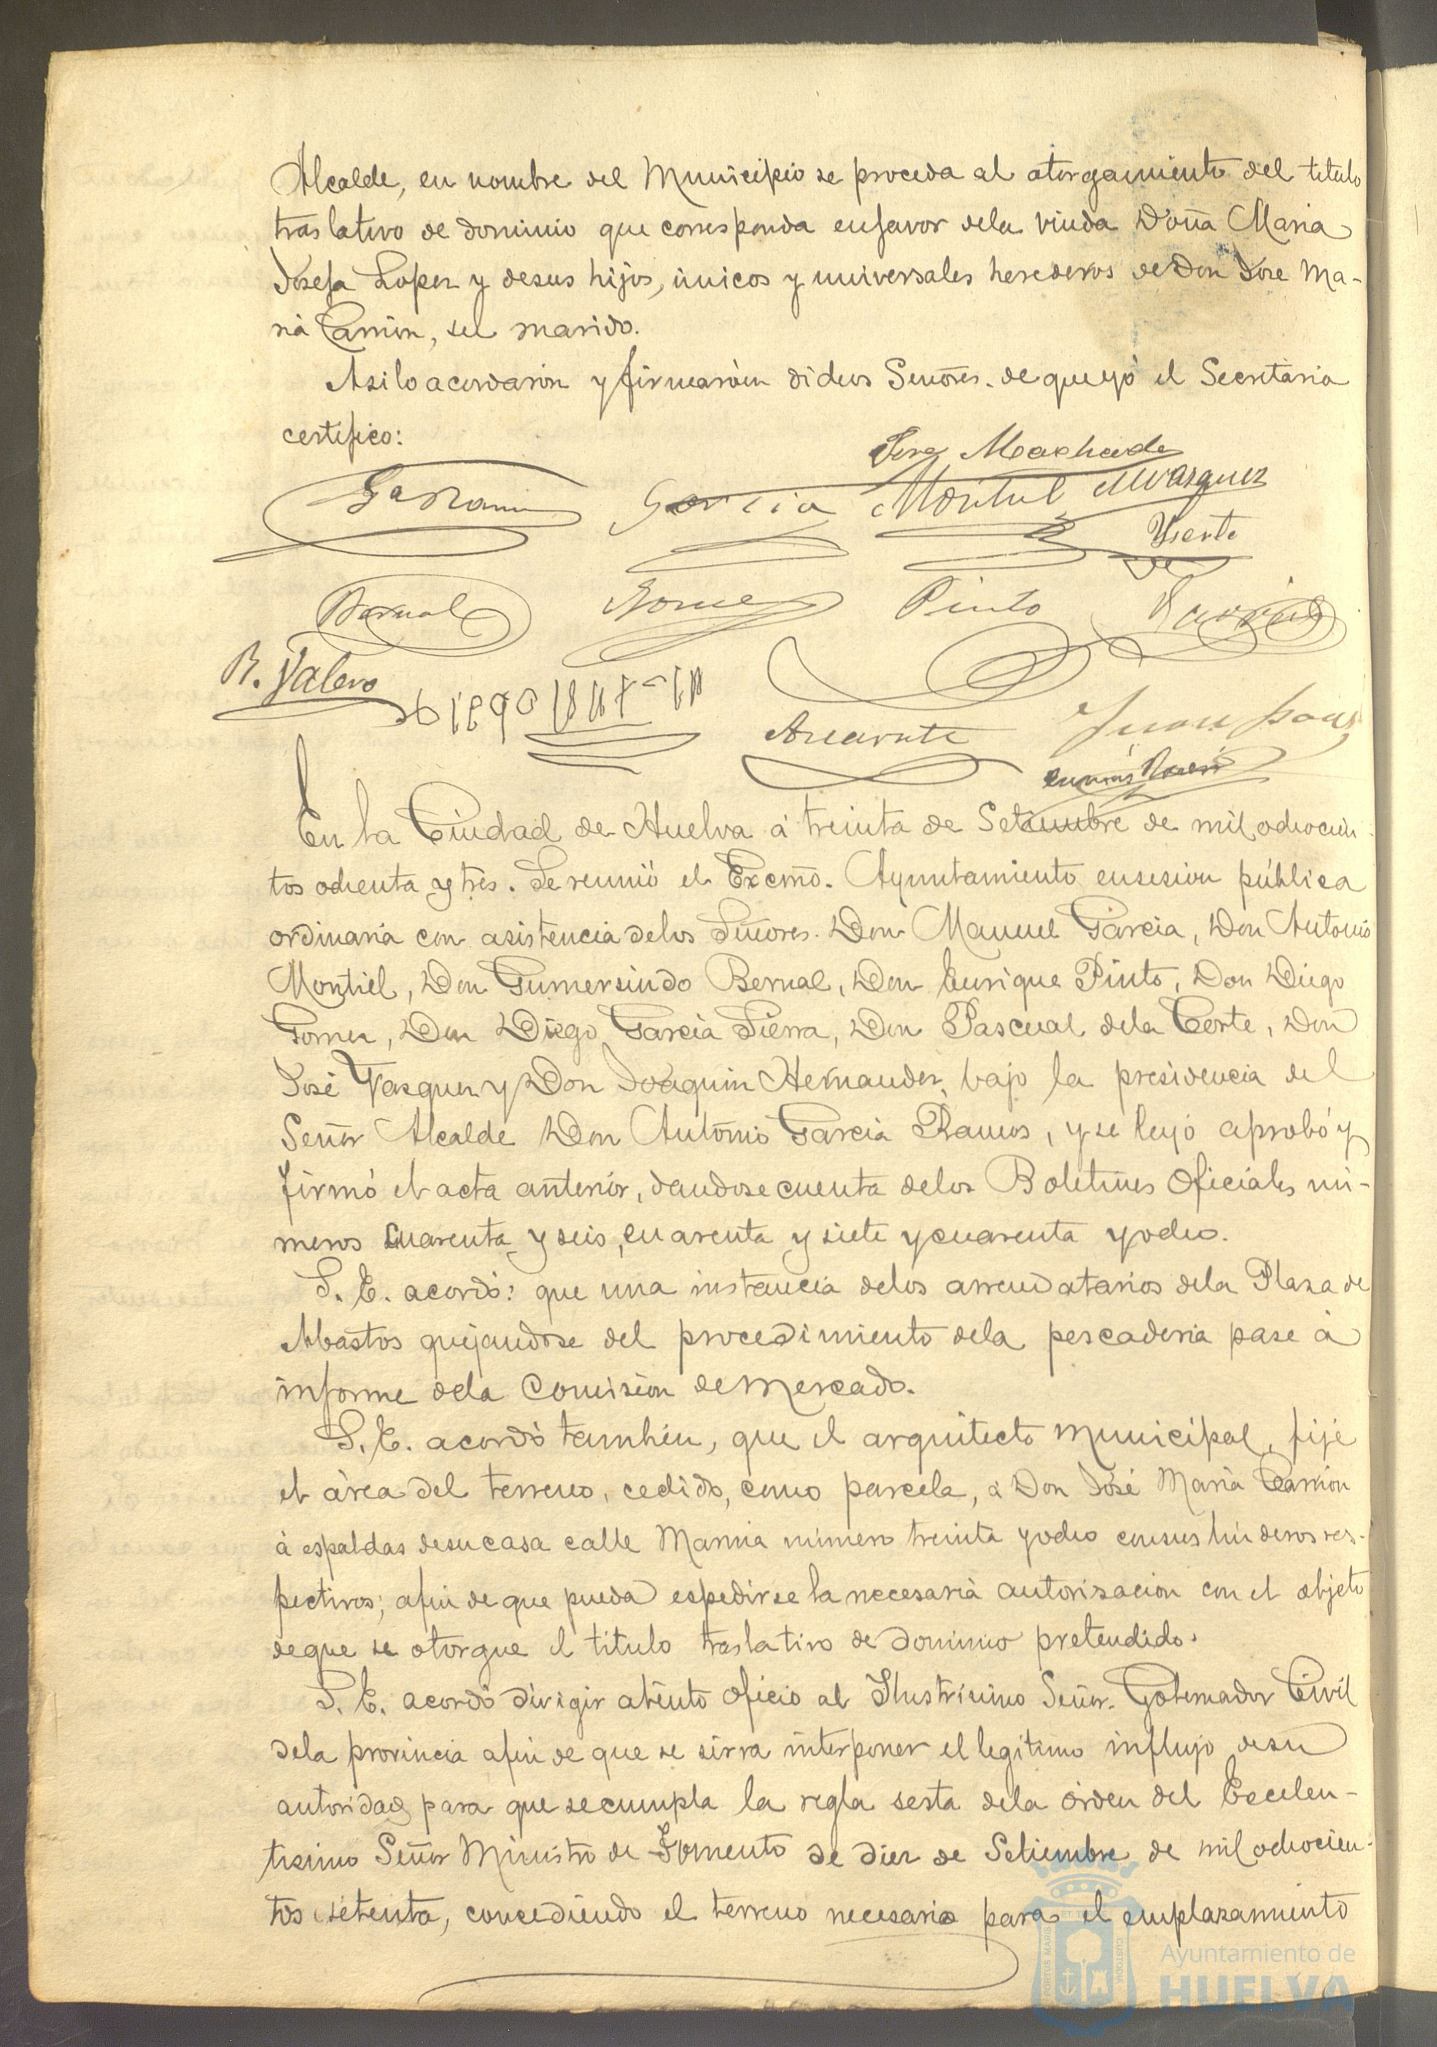 Alcalde, en nombre del Municipio se proceda al otorgamiento del titulo
traslativo de dominio que corresponda enfavor dela viuda Doña Maria
Josefa Lopez y desus hijos, únicos y universales herederos de Don Jose Ma-
ria Carrión, su marido.
Asilo acordarón y firmaróm dichos Señores. de que yó el Secretario
certifico:
Jose Machado
Ga Ramos
Garcia
Montiel
Vazquez
Bernal
Gomez
Pinto
R. Valero
En la Ciudad de Huelva á treinta de Setiembre de mil ochocien-
tos ochenta y tres. Se reunió el Excmo. Ayuntamiento ensesion pública
ordinaria con asistencia delos Señores. Don Manuel Garcia, Don Antonio
Montiel, Don Gumersindo Bernal, Don Enrique Pinto, Don Diego
Gomez, Don Diego Garcia Sierra, Don Pascual dela Corte, Don
José Vazquez y Don Joaquin Hernandez, bajo la presidencia del
Señor Alcalde Don Antonio Garcia Ramos, y se leyó aprobó y
firmó el acta anterior, dandose cuenta delos Boletines Oficiales nú-
meros cuarenta y seis, cuarenta y siete y cuarenta y ocho.
S. E. acordó: que una instancia delos arrendatarios dela Plaza de
Abastos quejandose del procedimiento dela pescaderia pase á
informe dela Comision de Mercado.
S. E. acordó tambien, que el arquitecto Municipal, fije
el área del terreno, cedido, como parcela, á Don José Maria Carrión
á espaldas desu casa calle Marina número treinta y ocho consus linderos res-
pectivos; afin de que pueda espedirse la necesaria autorizacion con el objeto
deque se otorgue el titulo traslativo de dominio pretendido.
S. E. acordó dirigir atento oficio al Ilustrisimo Señor. Gobernador Civil
dela provincia afin de que se sirva interponer el legitimo influjo desu
autoridad para que se cumpla la regla sesta dela órden del Escelen-
tisimo Señor Ministro de Fomento de diez de Setiembre de mil ochocien-
tos setenta, concediendo el terreno necesario para el emplazamiento
Ayuntamiento de
HUELVA